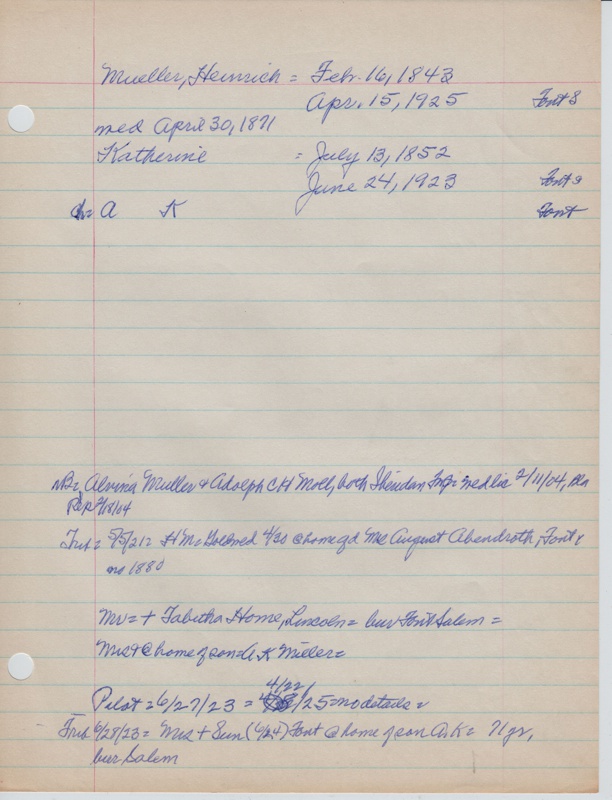 Mueller, Heinrich = Feb. 16, 1843
Apr. 15, 1925 Font 8
med April 30, 1871
Katherine = July 13, 1852
June 24, 1923 Font 9
ch= A K Font
Alvina Muller + Adolph CH Moll, both Sheridan, med lic 2/11/04,
Rep 2/18/04
Trib = 5/5/21= H M= Gold wed 4/30 @ home of d Mrs August Abendroth, Font
no 1880
Mr = + Tabitha Home, Lincoln = bur Font Salem =
Mrs + @ home of son = A K Miller =
Pilot = 6/27/23 = 4/22/25 = no details =
Trib 6/28/23 = Mrs + Sun (6/24) Font @ home of son A.K = 71 yr,
bur Salem